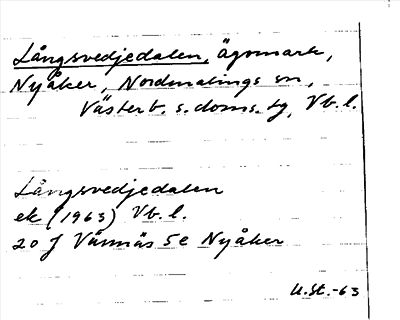 Långsvedjedalen, ägomark,
Nyåker, Nordmalings sn,
Västerb. s. doms. tg, Vb. l.
Långsvedjedalen
ek (1963) Vb. l.
20 J Vännäs 5e Nyåker
U.St.-63